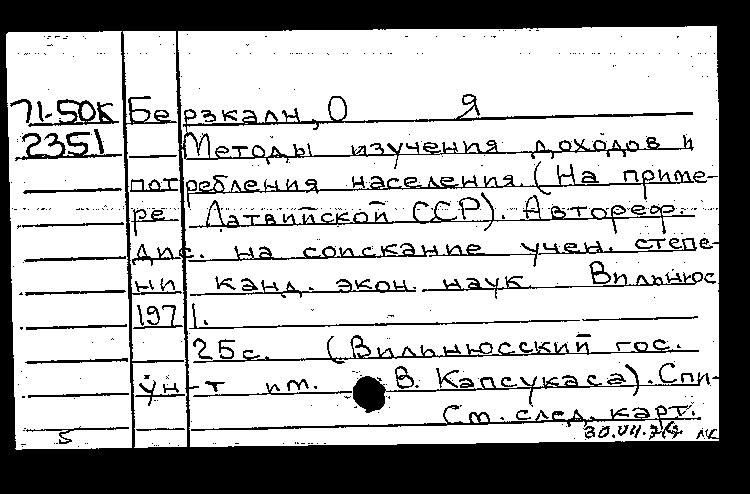 71-50К Берзкалн, О Я
2351 Методы изучения доходов и
потребления населения. (На приме-
ре Латвийской ССР). Автореф.
дис. на соискание учен. степе-
ни канд. экон. наук Вильнюс
1971.
25с. (Вильнюсский гос.
ун-т им. В. Капсукаса). Спи-
См. след. карт.
5